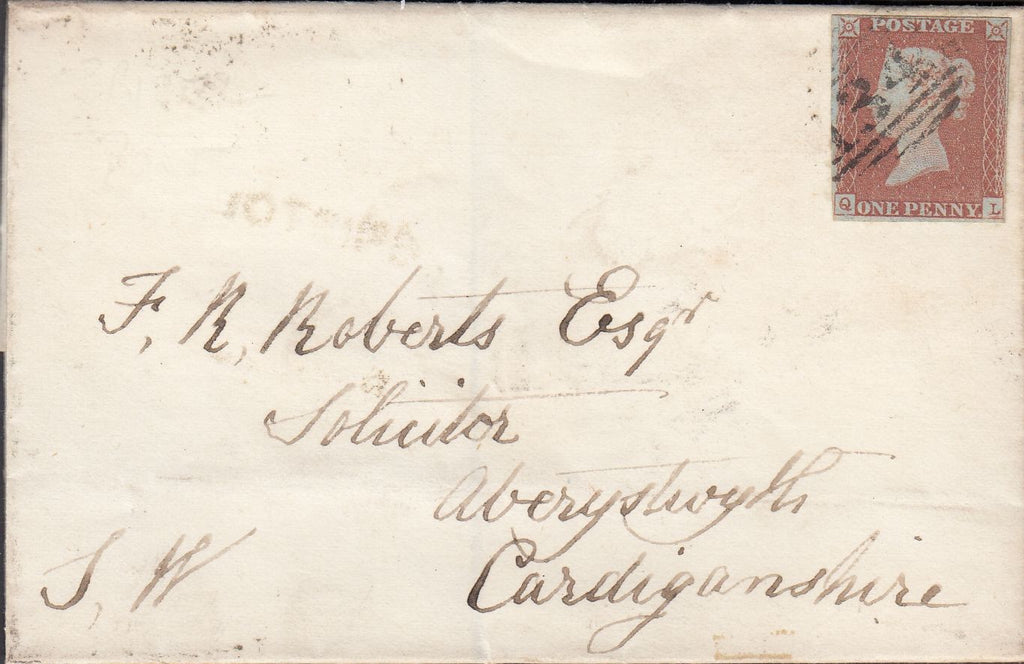 POSTAGE
Q ONE PENNY. L
F. R. Roberts Esqr
Solicitor
Aberystwyth
Cardiganshire
S. W